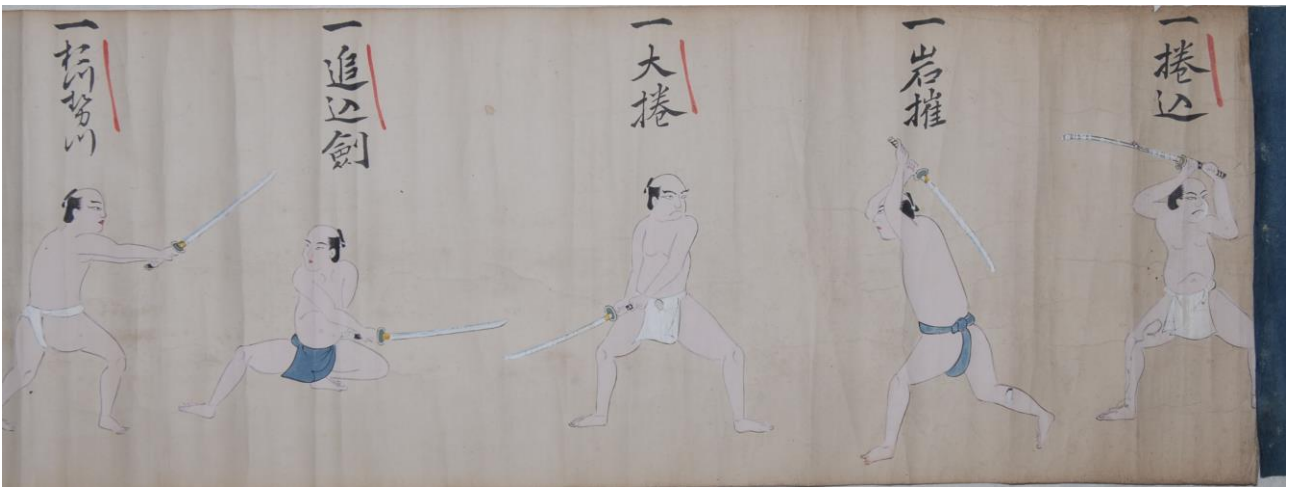 一捲込
一岩摧
一大捲
一追込劍
一